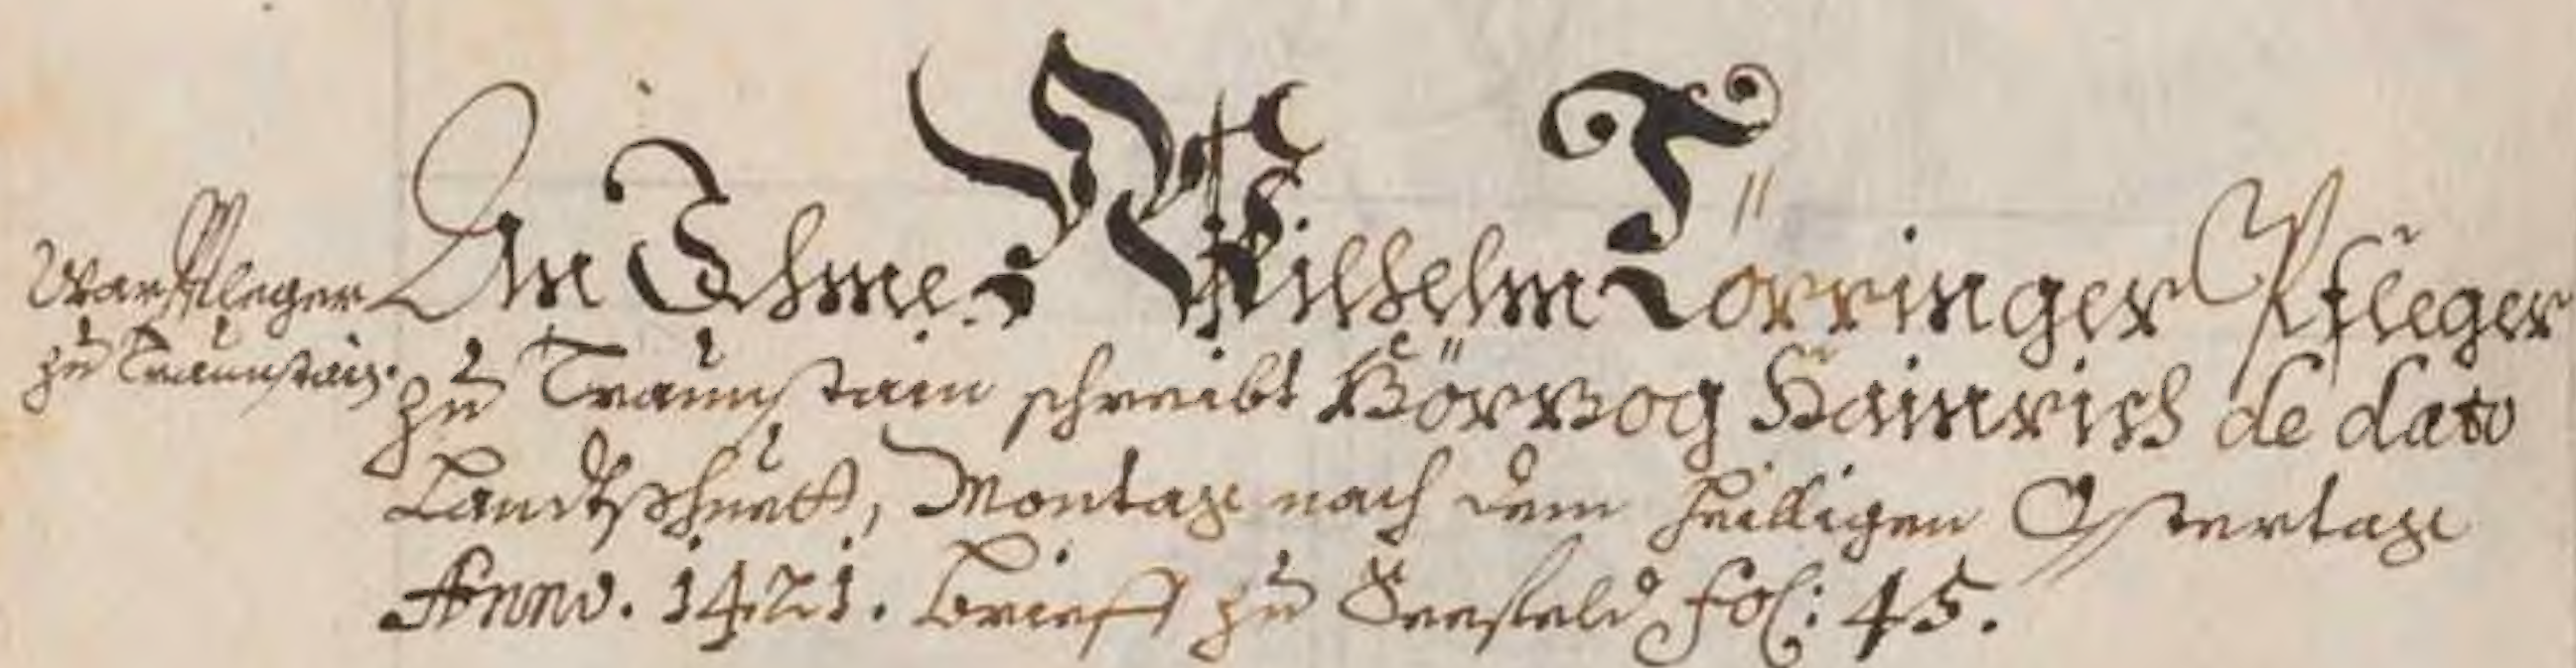 War Pfleger
zu Traunstain.
An Ihme Wilhelm Törringer Pfleger
zu Traunstain schreibt Hörzog Hainrich de dato
Landtshuett, Montag nach dem heilligen Ostertag
Anno. 1421. Brieff zu Seefeld fol: 45.